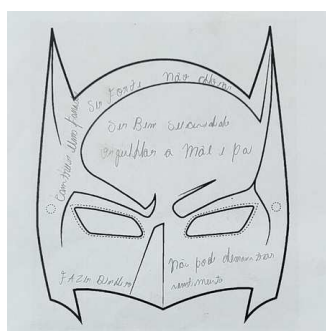 Ser Forte Não chorar
Ser Bem Sucedido
orgulhar a Mãe e pai
Construir uma família
FAZER Dinheiro
Não pode demonstrar
sentimento